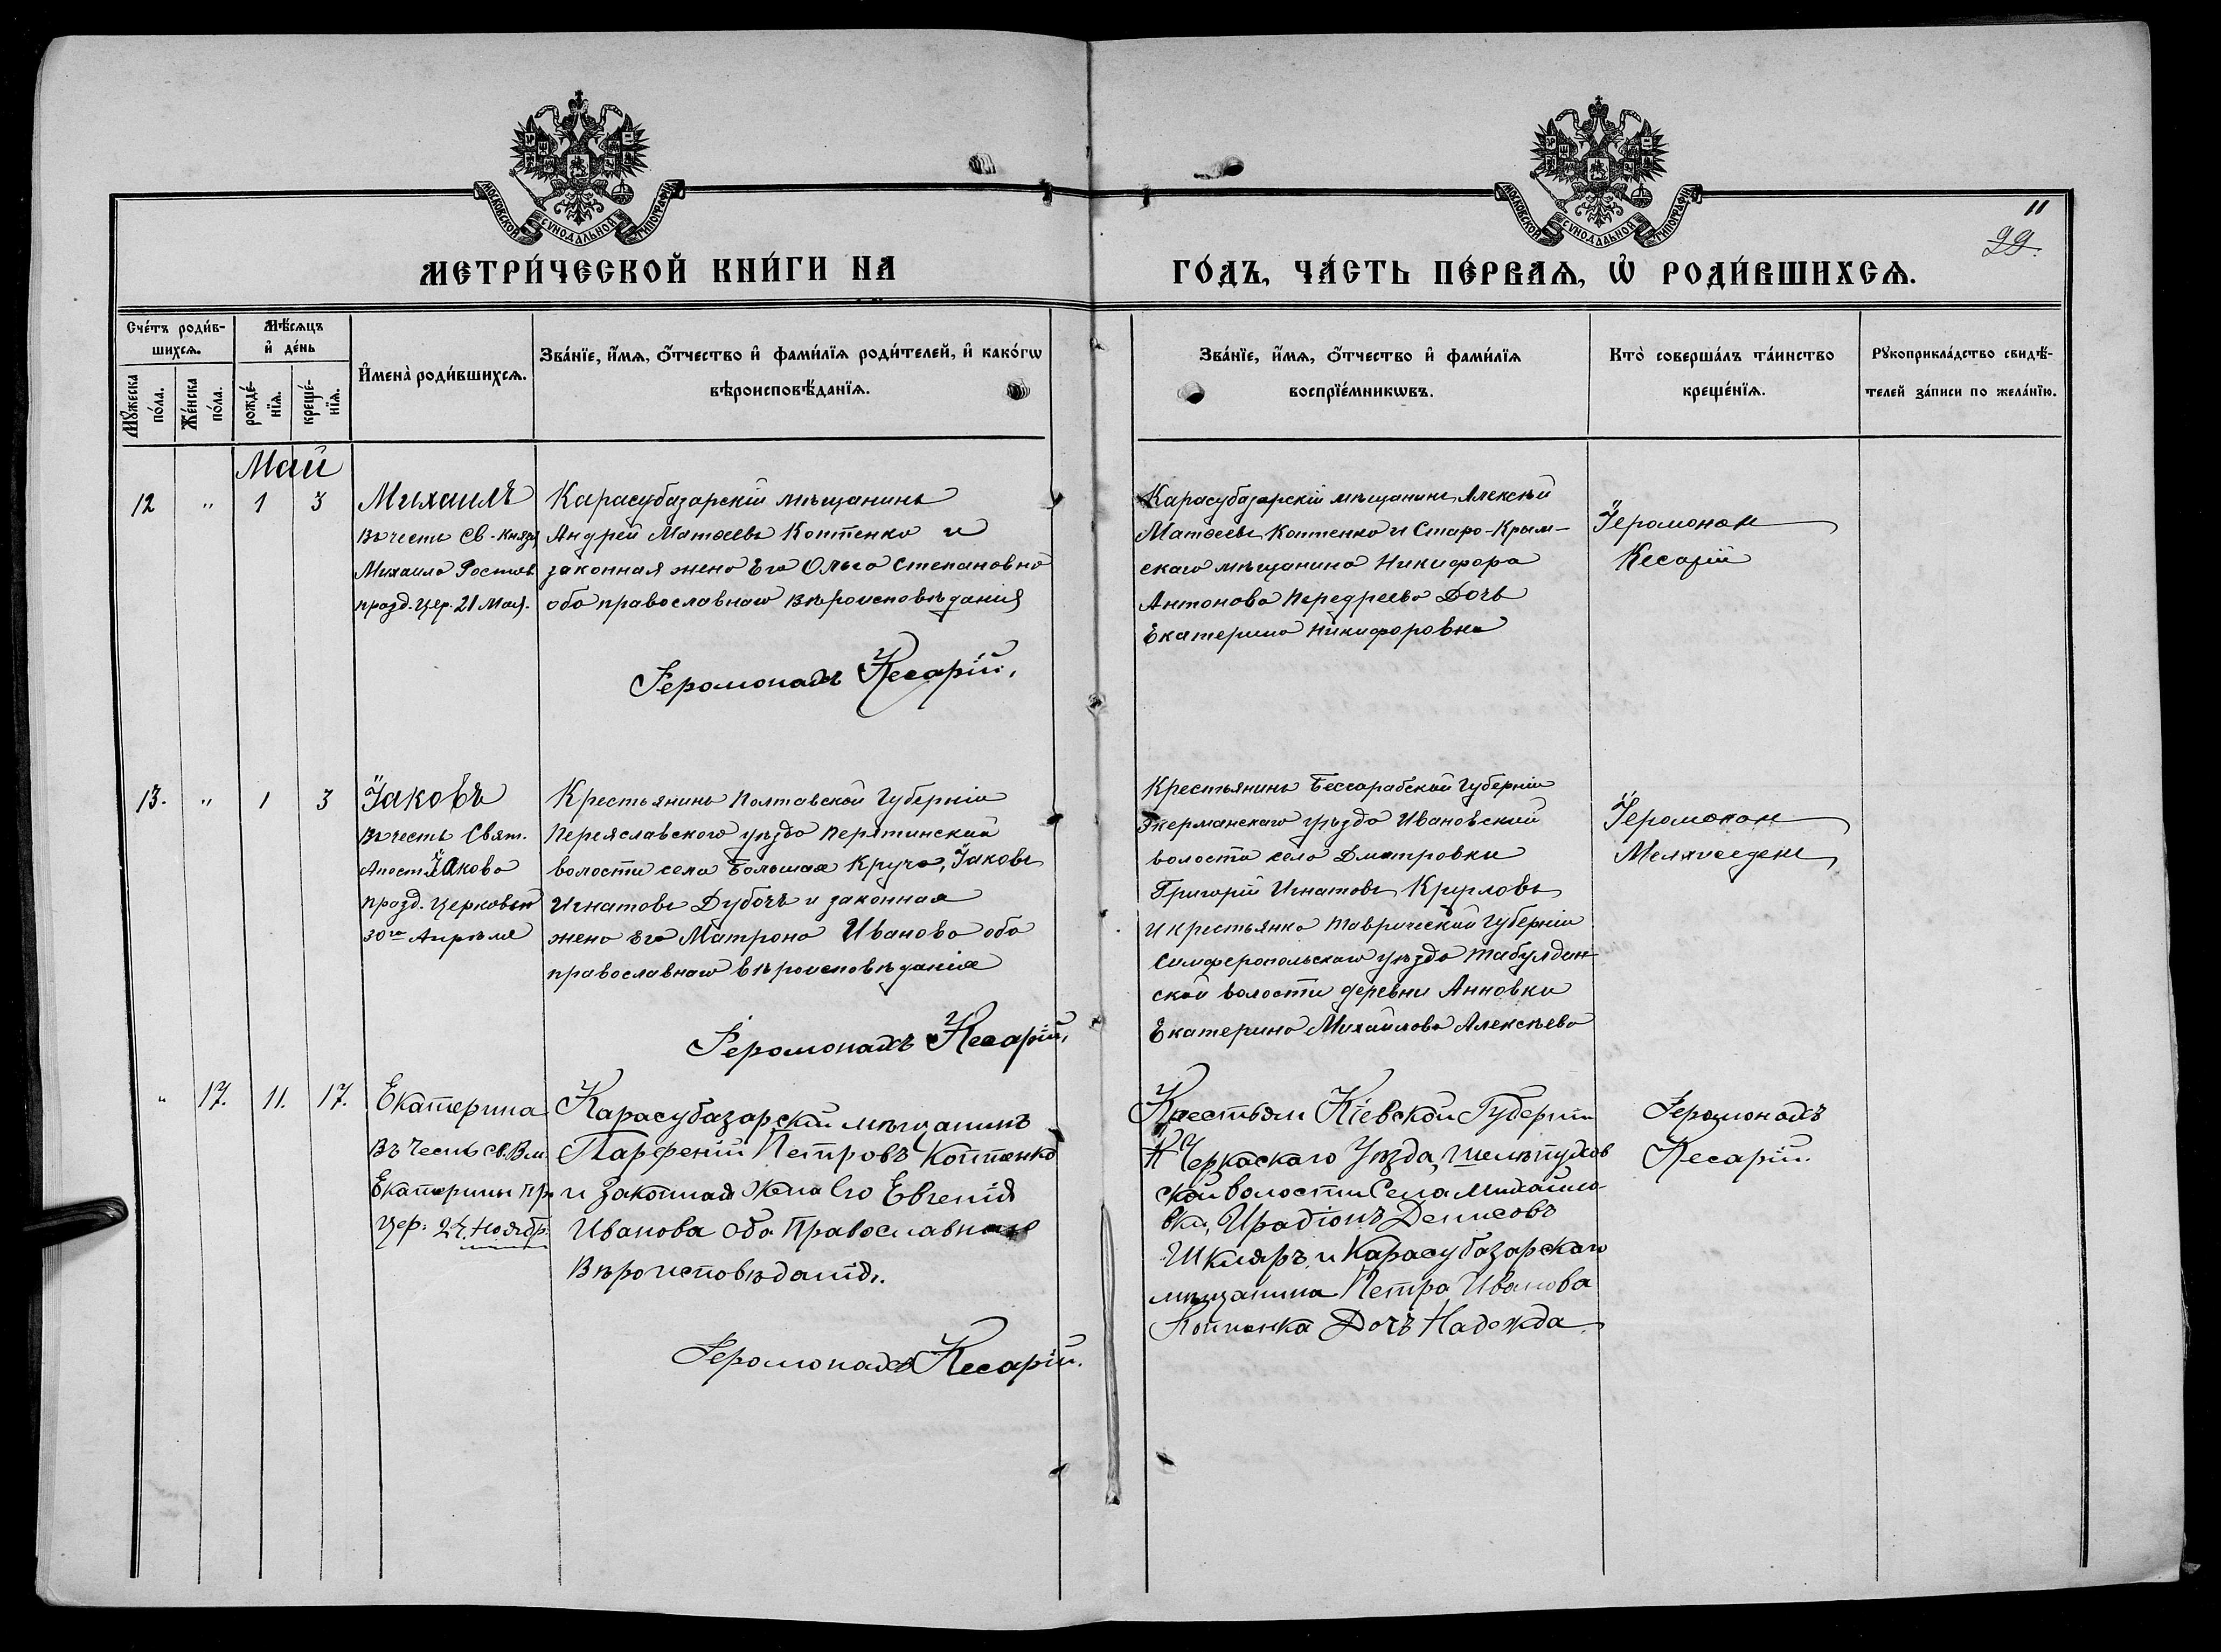 МОСКОВСКОЙ СѴНОДАЛЬНОЙ ТИПОГРАФІИ
МОСКОВСКОЙ СѴНОДАЛЬНОЙ ТИПОГРАФІИ
11
99.
МЕТРИ́ЧЕСКОЙ КНИ́ГИ НА
ГО́ДЪ, ЧА́СТЬ ПЕ́РВАѦ, Ѽ РОДИ́ВШИХСѦ.
Сче́тъ роди́в-
шихсѧ.
Мѣ́сѧцъ
и҆ де́нь
Мꙋ́жеска
по́ла.
Же́нска
по́ла.
рожде́-
нїѧ.
креще́-
нїѧ.
И҆мена̀ роди́вшихсѧ.
Зва́нїе, и҆́мѧ, ѻ҆́тчество и҆ фами́лїѧ роди́телей, и҆ како́гѡ
вѣроисповѣ́данїѧ.
Зва́нїе, и҆́мѧ, ѻ҆́тчество и҆ фами́лїѧ
воспрїе́мникѡвъ.
Кто̀ соверша́лъ та́инство
креще́нїѧ.
Рꙋкоприкла́дство свидѣ́-
телей за́писи по жела́нїю.
Май
12 " 1 3
Михаилъ
въ честь Св. Князя
Михаила Ростов.
празд. цер. 21 Мая.
Карасубазарскій мѣщанинъ
Андрей Матѳеевъ Коттенко и
законная жена Его Ольга Степановна
оба православнаго вѣроисповѣданія
Іеромонахъ Кесарій.
Карасубазарскій мѣщанинъ Алексѣй
Матѳеевъ Коттенко и Старо-Крым-
скаго мѣщанина Никифора
Антонова Передреева Дочь
Екатерина Никифоровна
Іеромонах
Кесарій
13. " 1 3
Іаковъ
въ честь Свят.
Апост. Іакова
празд. церковью
30го Апрѣля
Крестьянинъ Полтавской Губерніи
Переяславского уѣзда Перятинской
волости села Большая Круча, Іаковъ
Игнатовъ Дубочъ и законная
жена Его Матрона Иванова оба
православнаго вѣроисповѣданія
Іеромонахъ Кесарій.
Крестьянинъ Бессарабской Губерніи
Экерманскаго уѣзда Ивановской
волости села Дмитровки
Григорій Игнатовъ Круглов
и крестьянка Таврической Губерніи
Симферопольскаго уѣзда Табулдин-
ской волости деревни Анновки
Екатерина Михайлова Алексѣева
Іеромонах
Мелхиседек
" 17. 11. 17.
Екатерина
въ честь св. Вм.
Екатерины пр.
цер. 24. Ноябр.
Карасубазарскій мѣщанинъ
Парфеній Петровъ Коттенко
и законная жена Его Евгенія
Иванова оба Православнаго
Вѣроисповѣданія.
Іеромонахъ Кесарій.
Крестьян Кіевской Губерніи
Черкаскаго Уѣзда,
ской волости Села Михайло-
вки, Ирадіонъ Денисовъ
Шкляръ, и Карасубазарскаго
мѣщанина Петра Иванова
Коттенка Дочъ Надежда.
Іеромонахъ
Кесарій.